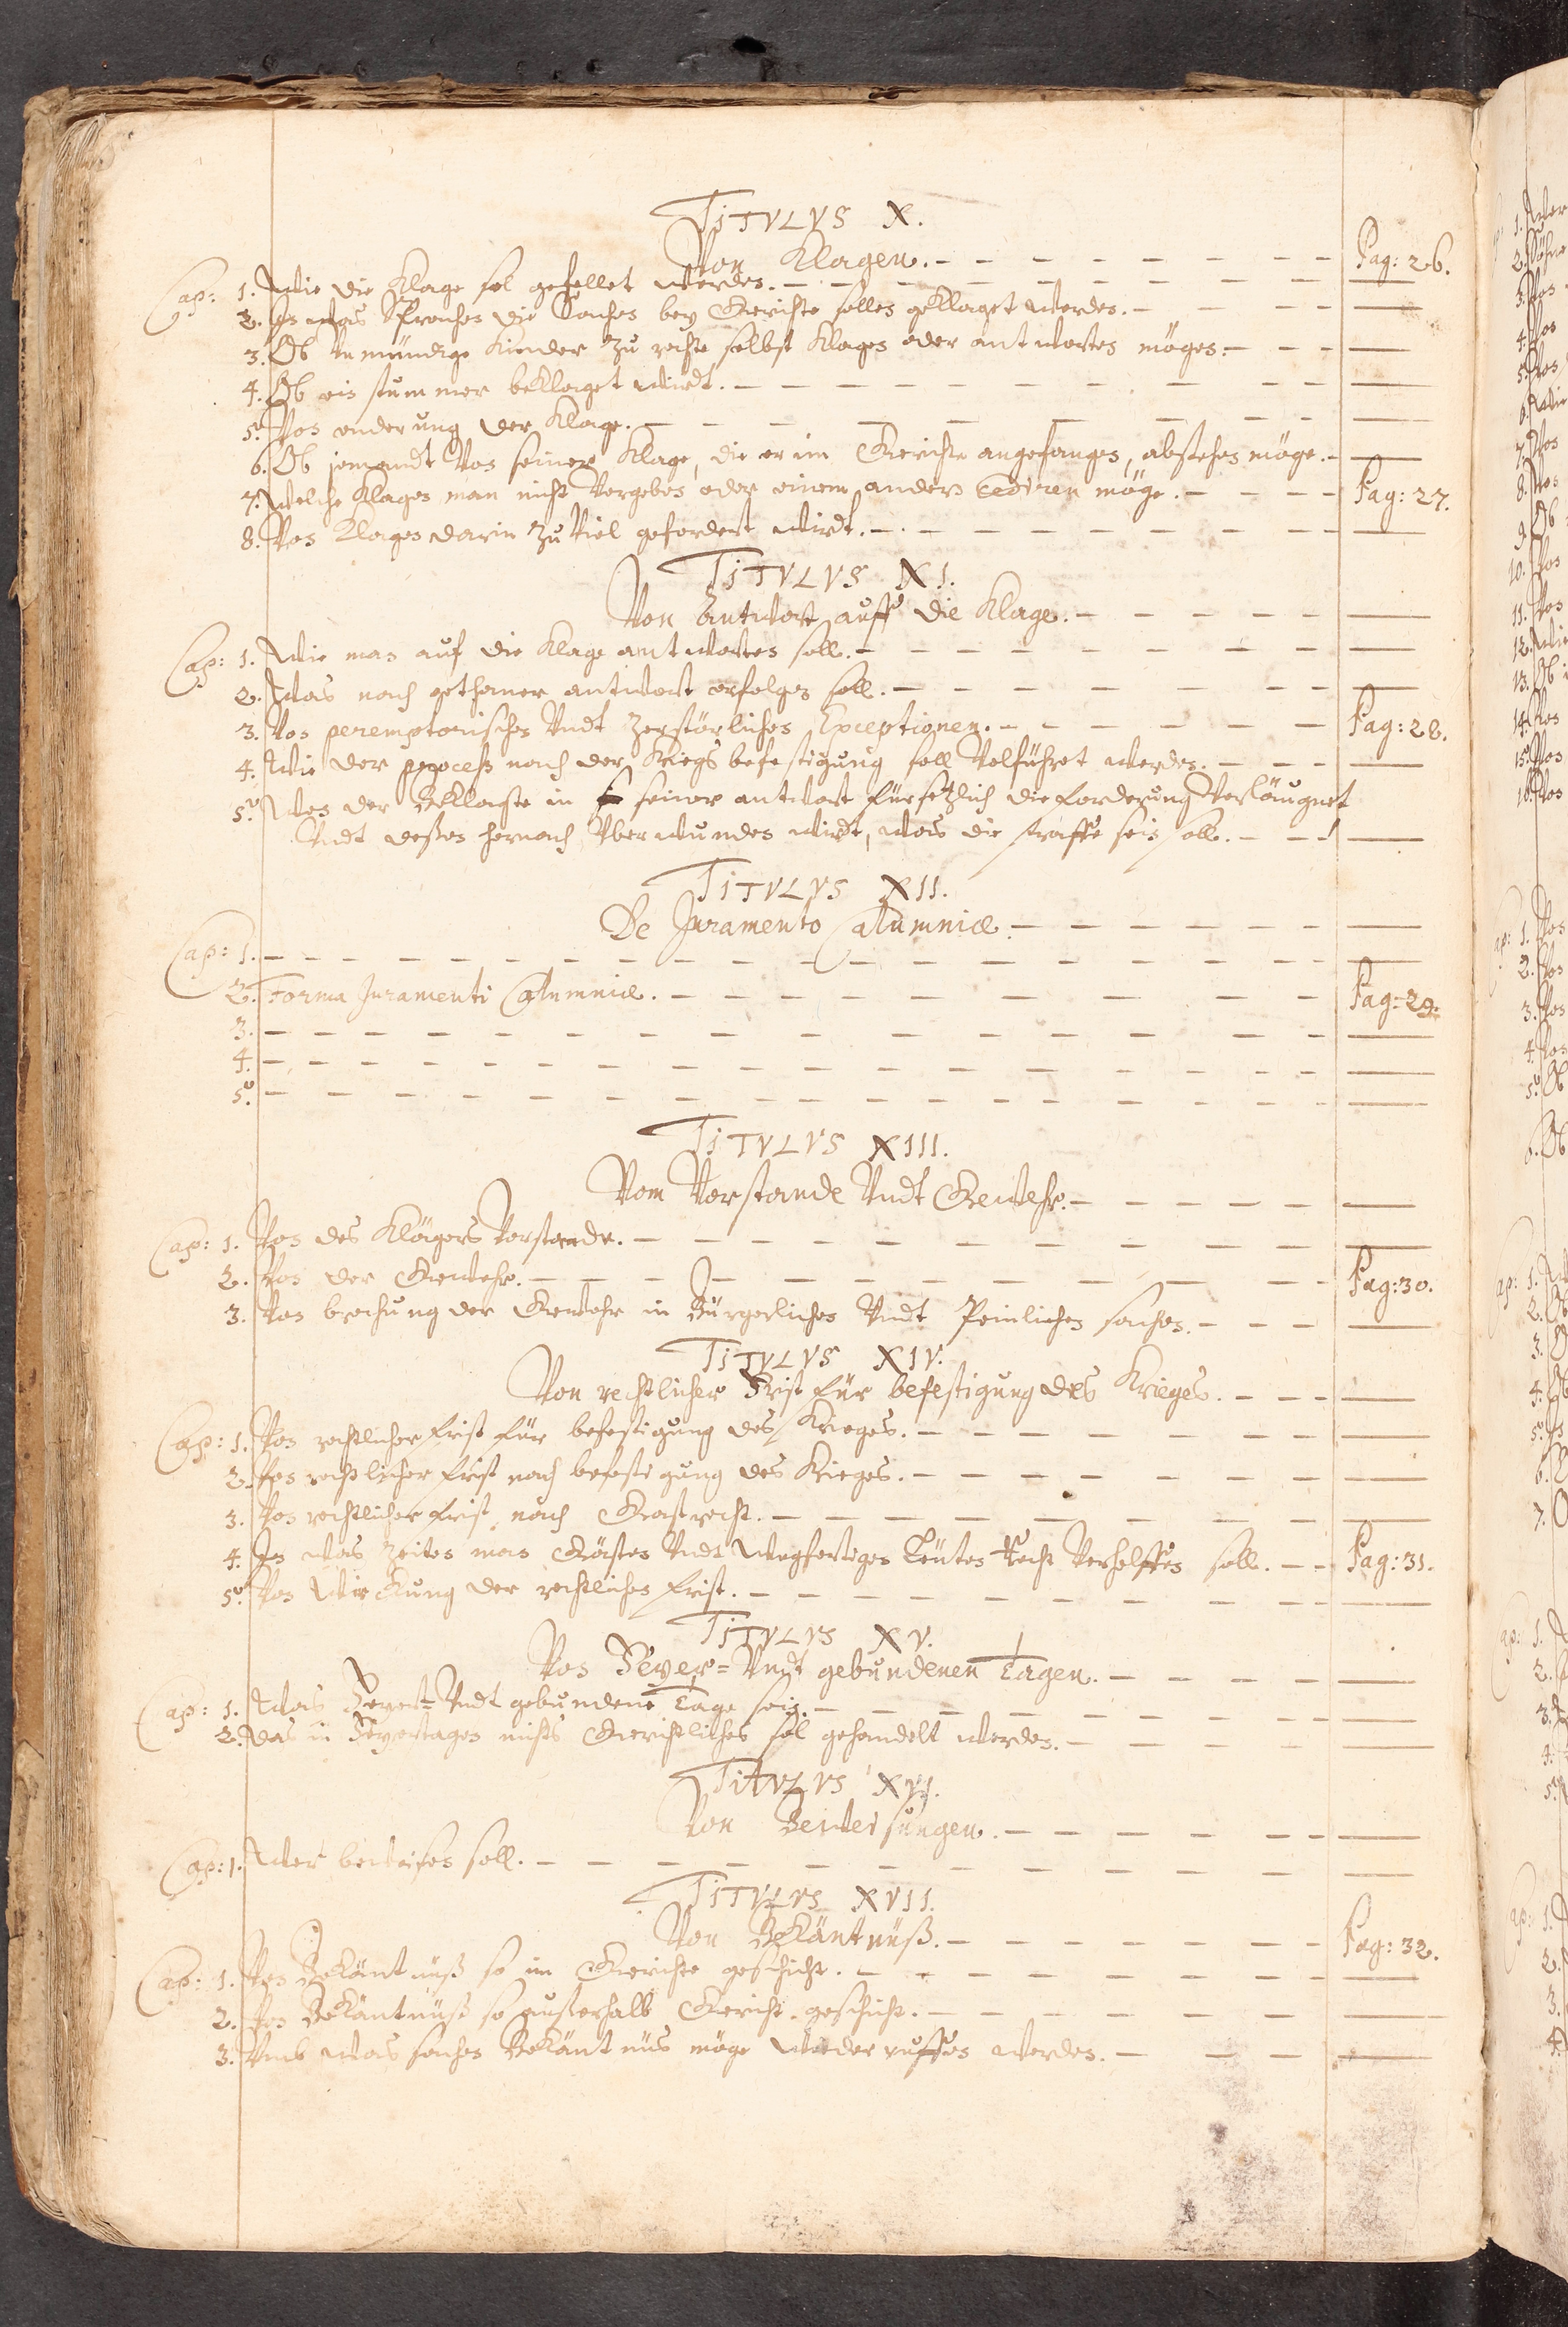 TiTVLVS X.
Von Klagen. Pag: 26.
Cap: 1. Wie die Klage sol gestellet werden.
2. In was Sprachen die Sachen bey Gerichte sollen geklaget werden.
3. Ob unmündige Kinder zu rechte selbst klagen oder antworten mögen.
4. Ob ein stummer beklaget wirdt.
5. Von enderung der Klage.
6. Ob jemandt von seiner Klage, die er im Gerichte angefangen, abstehen möge.
7. Welche Klagen man nicht vergeben oder einem andern cediren möge. Pag: 27.
8. Von Klagen darin zu viel gefordert wirdt.
TiTVLVS XI.
Von Antwort auff die Klage.
Cap: 1. Wie man auf die Klage antworten soll.
2. Was nach gethaner antwort erfolgen soll.
3. Von peremptorischen Undt zerstörlichen Exceptionen. Pag: 28.
4. Wie der process nach der Kriegs befestigung soll volführet werden.
5. Wen der Beklagte in seiner antwort fürsetzlich die forderung verläugnet
Undt deßen hernach überwunden wirdt, was die straffe sein soll.
TiTVLVS XII.
De Juramento Calumniæ.
Cap: 1.
2. Forma Juramenti Calumniæ. Pag: 29.
3.
4.
5.
TiTVLVS XIII.
Vom Vorstande Undt Gewehr.
Cap: 1. Von des Klägers Vorstande.
2. Von der Gewehr. Pag: 30.
3. Von brechung der Gewehr in Bürgerlichen Undt Peinlichen sachen.
TiTVLVS XIV.
Von rechtlicher Frist für befestigung des Krieges.
Cap: 1. Von rechtlicher frist für befestigung des Krieges.
2. Von rechtlicher frist nach befestigung des Krieges.
3. Von rechtlicher frist nach Gastrecht.
4. In was zeiten man Gästen Undt wegfertigen Leuten Recht verhelffen soll. Pag: 31.
5. Von Wirckung der rechtlichen frist.
TiTVLVS XV.
Von Feyer= Undt gebundenen Tagen.
Cap: 1. Was Feyer= Undt gebundene Tage sein.
2. Das in Feyertagen nichts Gerichtliches sol gehandelt werden.
TiTVLVS XVI.
Von Beweisungen.
Cap: 1. Wer beweisen soll.
TiTVLVS XVII.
Von Bekäntnüß. Pag: 32.
Cap: 1. Von Bekäntnüß so im Gerichte geschicht.
2. Von Bekäntnüß so ausserhalb Gericht geschicht.
3. Umb was sachen Bekäntnüs möge wiederruffen werden.